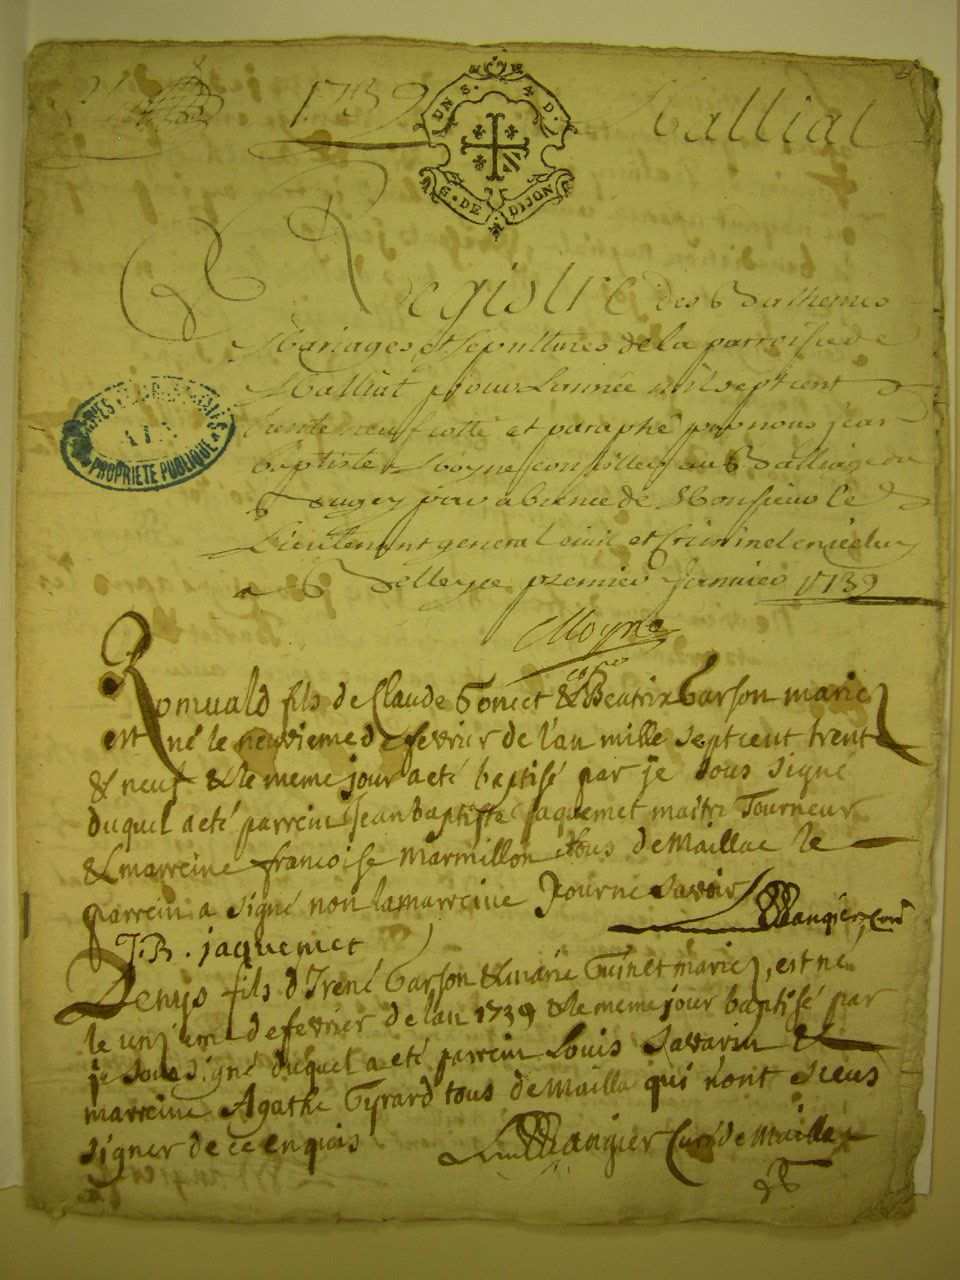 1739
Malliat
UN S. 4 D.
G. DE DIJON
Registre des Bathemes
Mariages et Sepultures de la parroisse de
Malliat pour Lannée mil sept cent
trente neuf cotté et paraphé par nous jean
baptiste Moyne conseiller au Balliage de
Bugey par absence de Monsieur le
Lieutenant general civil et Criminel
a Belley ce premier Janvier 1739
Moyne
PROPRIETE PUBLIQUE
Romuald fils de Claude Goncet & Beatrix Garson mariez
est né le neuvieme de fevrier de l'an mille sept cent trent
& neuf & le meme jour a eté baptisé par je sous signé
duquel a eté parrein Jean baptiste jaquemet maitre Tourneur
& marreine francoise Marmillon tous de Maillac le
parrein a signé non la marreine pour ne savoir
Mangier Curé
J. B. jaquemet
Denys fils d'Irené Garson & marie Guinet mariez, est né
le unziem de fevrier de lan 1739 & le meme jour baptisé par
je sous signé duquel a eté parrein Louis Savarin &
marreine Agathe Gyrard tous de Mailla qui n'ont sceus
signer de ce enquis
Mangier Curé de Mailla